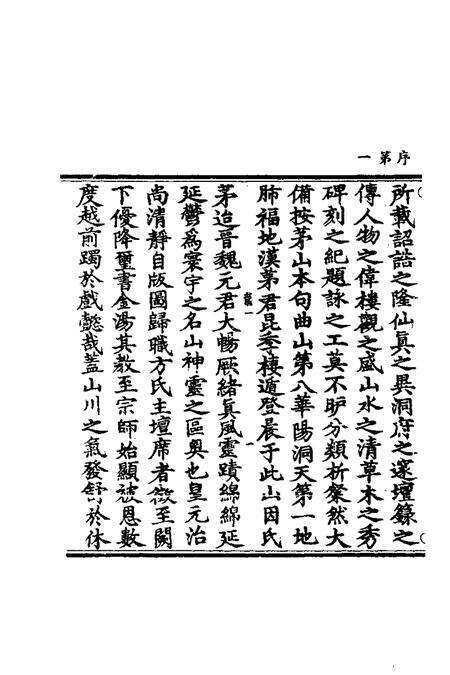 序第一
所載詔誥之隆仙真之異洞府之邃壇籙之
傳人物之偉樓觀之盛山水之清草木之秀
碑刻之紀題詠之工莫不昈分類析粲然大
備按茅山本句曲山第八華陽洞天第一地
肺福地漢茅君昆季棲遁登晨于此山因氏
茅迨晉魏元君大暢厥緒真風靈蹟綿綿延
延鬱爲寰宇之名山神靈之區奥也皇元治
尚清靜自版圖歸職方氏主壇席者徵至闕
下優降璽書金湯其教至宗師始顯被恩數
度越前躅於戲懿哉蓋山川之氣發舒於休